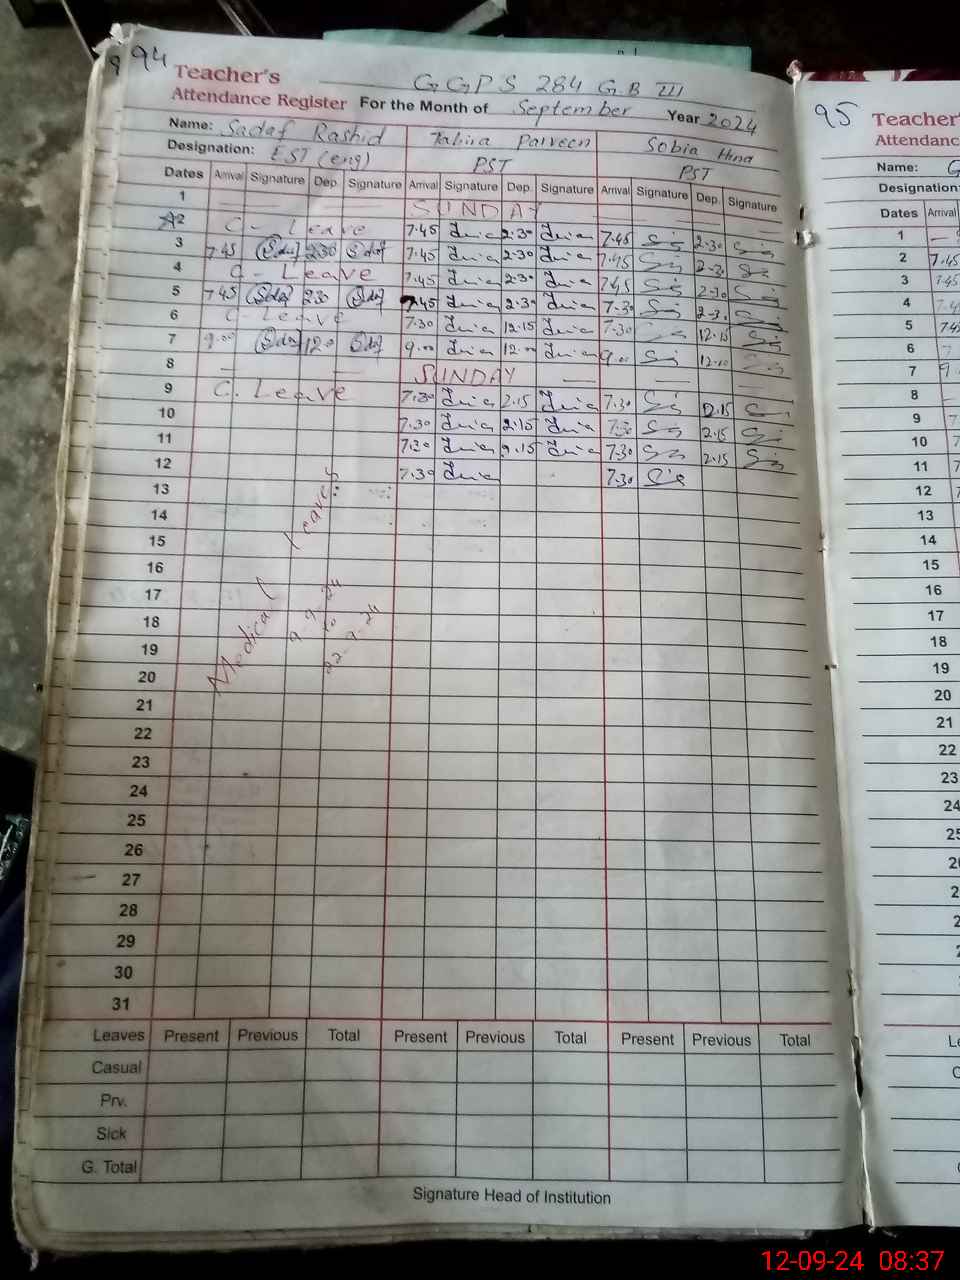 94
Teacher's GGPS 284 GB III
Attendance Register For the Month of September Year 2024
Name: Sadaf Rashid Tahira Parveen Sobia Hina
Designation: EST (eng) PST PST
Dates Arrival Signature Dep. Signature Arrival Signature Dep. Signature Arrival Signature Dep. Signature
1 SUNDAY
2 C - Leave 7.45 2.30 7.45 2.30
3 7.45 2.30 7.45 2.30 7.45 2.30
4 C - Leave 7.45 2.30 7.45 2.30
5 7.45 2.30 7.45 2.30 7.30 2.30
6 C - Leave 7.30 12.15 7.30 12.15
7 9.00 12.0 9.00 12.00 9.00 12.00
8 SUNDAY
9 C. Leave 7.30 2.15 7.30 2.15
10 7.30 2.15 7.30 2.15
11 7.30 2.15 7.30 2.15
12 7.30 7.30
13
14
15
16
17
18
19
20
21
22
23
24
25
26
27
28
29
30
31
Medical Leave
9-9-24
to
22-9-24
Leaves Present Previous Total Present Previous Total Present Previous Total
Casual
Prv.
Sick
G. Total
Signature Head of Institution
95
Teacher'
Attendanc
Name:
Designation:
Dates Arrival
1
2 7.45
3 7.45
4
5
6
7
8
9
10
11
12
13
14
15
16
17
18
19
20
21
22
23
24
12-09-24 08:37